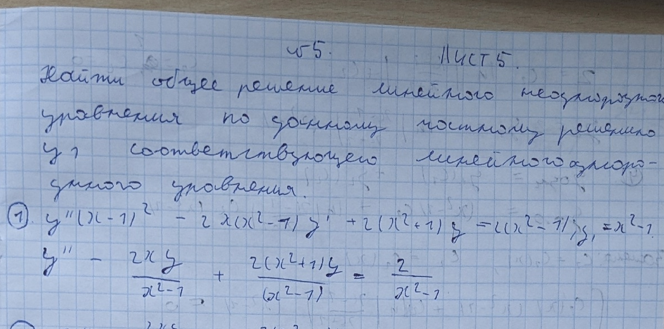 №5. Лист 5.
Найти общее решение линейного неоднородного
уравнения по данному частному решению
y₁ соответствующего линейного одноро-
дного уравнения.
① y''(x-1)² - 2x(x²-1)y' + 2(x²+1)y = 2(x²-1); y₁=x²-1
y'' - 2xy/(x²-1) + 2(x²+1)y/(x²-1) = 2/(x²-1)